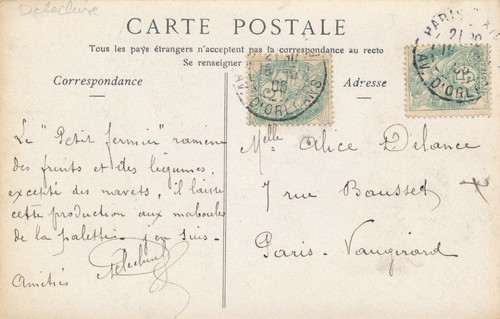 CARTE POSTALE
Tous les pays étrangers n'acceptent pas la correspondance au recto
Se renseigner
Correspondance
Le "Petit fermier" ramène
des fruits et des légumes,
excepté des navets, il laisse
cette production aux maboules
de la palette. j'en suis.
Amitiés
Adresse
AV. D'ORLEANS
PARIS
AV. D'ORLEANS
Melle Alice Delance
7 rue Bausset
Paris. Vaugirard